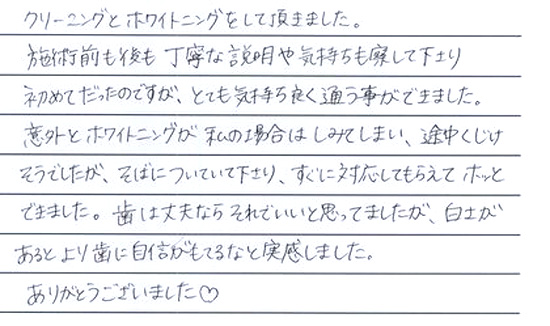 クリーニングとホワイトニングをして頂きました。
施術前も後も丁寧な説明や気持ちも察して下さり
初めてだったのですが、とても気持ち良く通う事ができました。
意外とホワイトニングが私の場合はしみてしまい、途中くじけ
そうでしたが、そばについていて下さり、すぐに対応してもらえてホッと
できました。歯は丈夫ならそれでいいと思ってましたが、白さが
あるとより歯に自信がもてるなと実感しました。
ありがとうございました♡